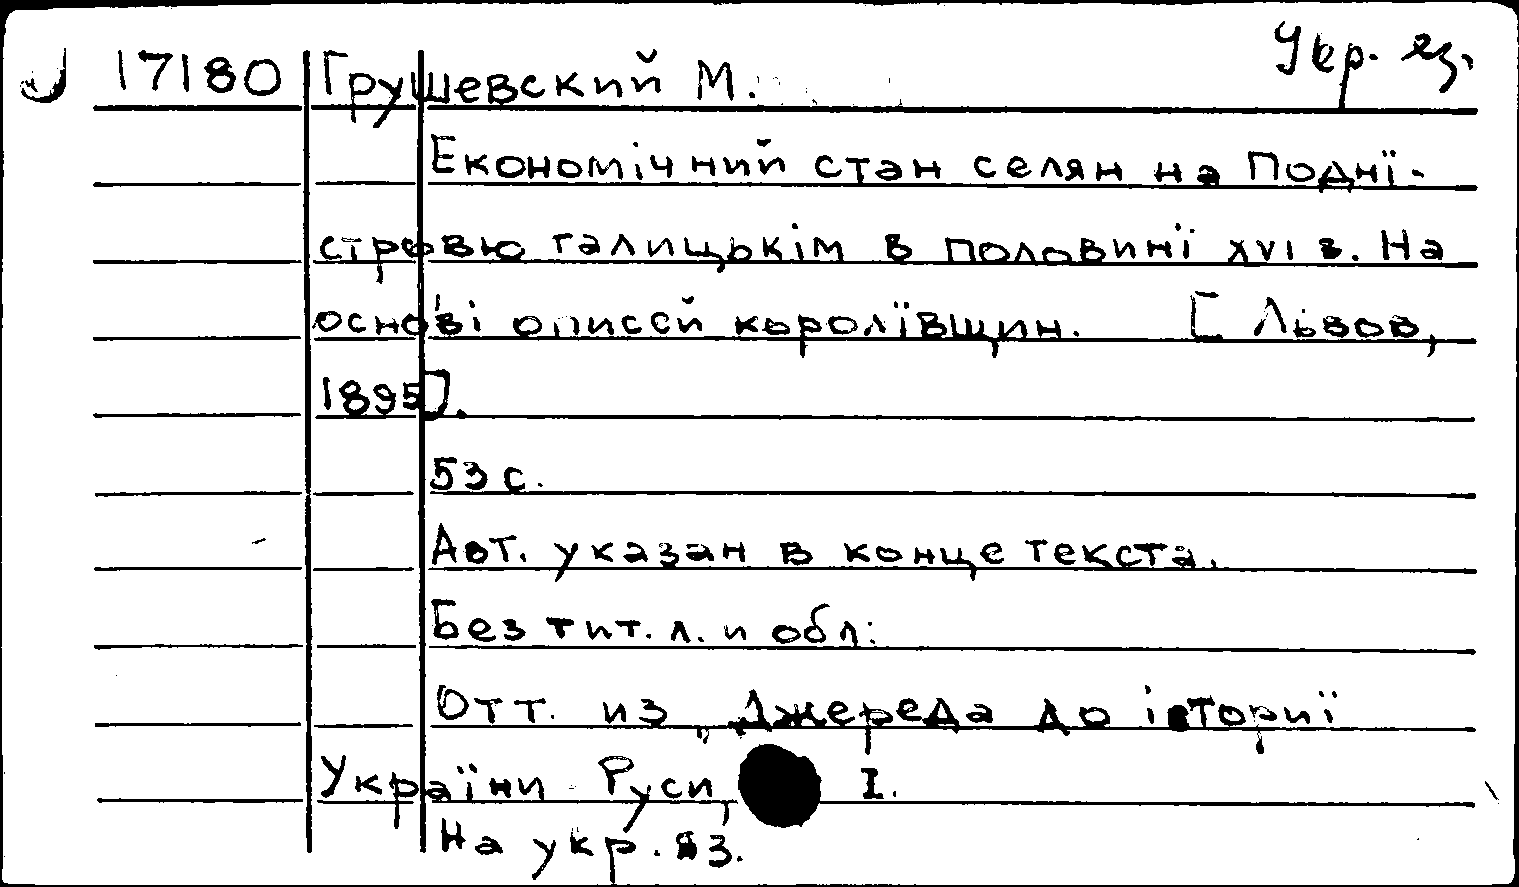 Укр. яз.
17180 Грушевский М.
Економічний стан селян на Подні-
стровю галицькім в половині XVI в. На
основі описей королівщин. [Львов,
1895].
53 с.
Авт. указан в конце текста.
Без тит. л. и обл.
Отт. из „Джереда до історії
України Руси, I.
На укр. яз.